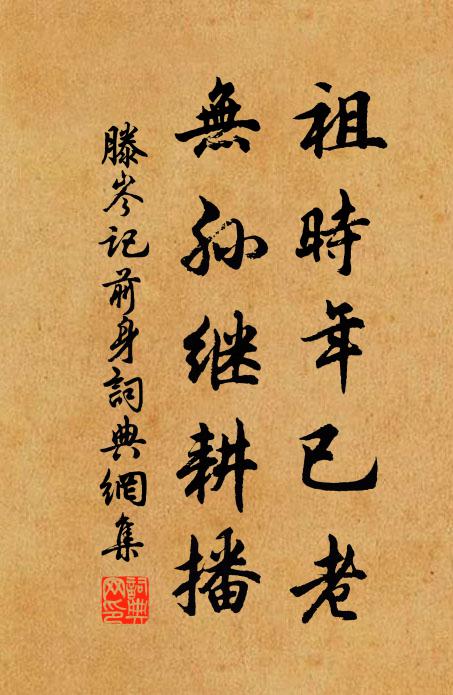 祖時年已老
無孙继耕播
滕岑记前身詞典網集
詞典网印